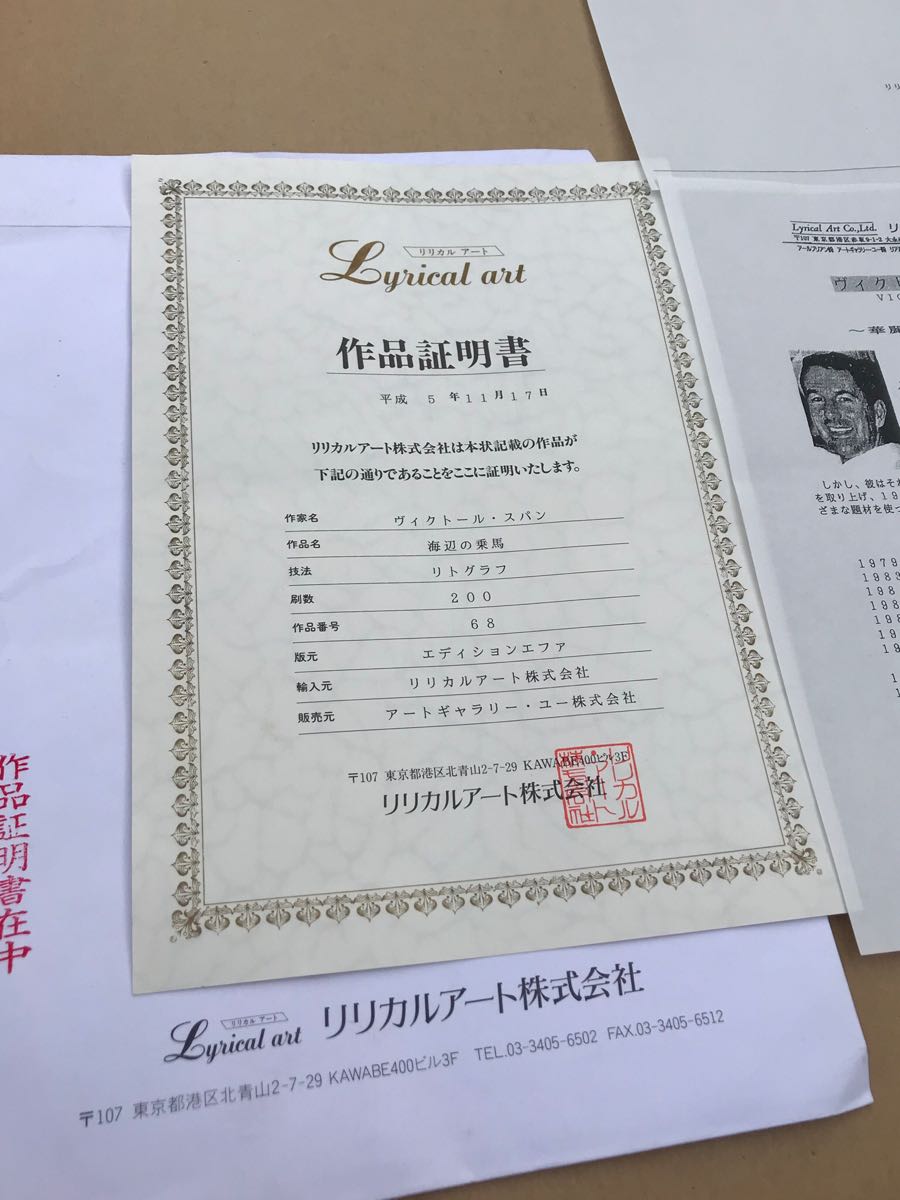 リリカル アート
Lyrical art
作品証明書
平成 5 年11月17日
リリカルアート株式会社は本状記載の作品が
下記の通りであることをここに証明いたします。
作家名 ヴィクトール・スパン
作品名 海辺の乗馬
技法 リトグラフ
刷数 200
作品番号 68
版元 エディションエファ
輸入元 リリカルアート株式会社
販売元 アートギャラリー・ユー株式会社
〒107 東京都港区北青山2-7-29 KAWABE400ビル3F
リリカルアート株式会社
作品証明書在中
リリカル アート
Lyrical art リリカルアート株式会社
〒107 東京都港区北青山2-7-29 KAWABE400ビル3F TEL.03-3405-6502 FAX.03-3405-6512
リリ
Lyrical Art Co.,Ltd. リ
〒107 東京都港区赤坂9-1-2
ヴィクト
VIC
～華麗
しかし、彼はそれ
を取り上げ、19
ざまな題材を使っ
1979
1983
198
198
198
19
19
1
1